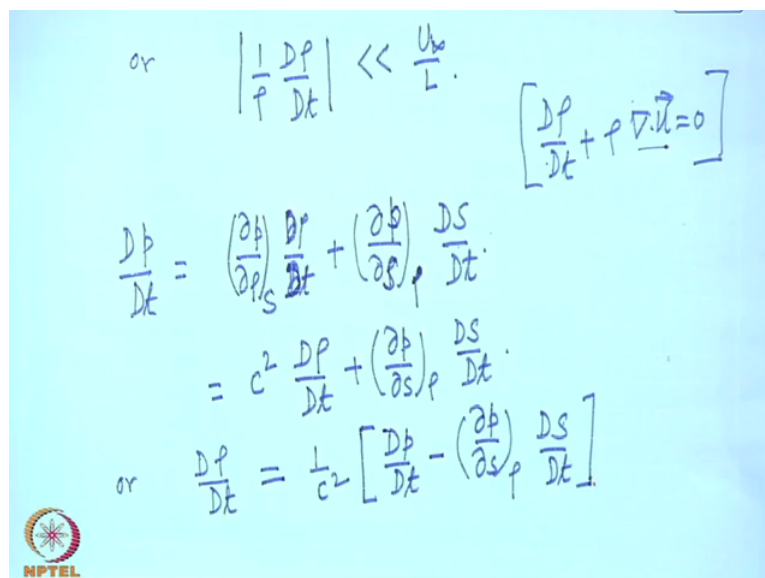 or |1/ρ Dρ/Dt| << U∞/L.
[Dρ/Dt + ρ ∇·u⃗ = 0]
Dp/Dt = (∂p/∂ρ)_S Dρ/Dt + (∂p/∂S)_ρ DS/Dt.
= c² Dρ/Dt + (∂p/∂S)_ρ DS/Dt.
or Dρ/Dt = 1/c² [Dp/Dt - (∂p/∂S)_ρ DS/Dt]
NPTEL